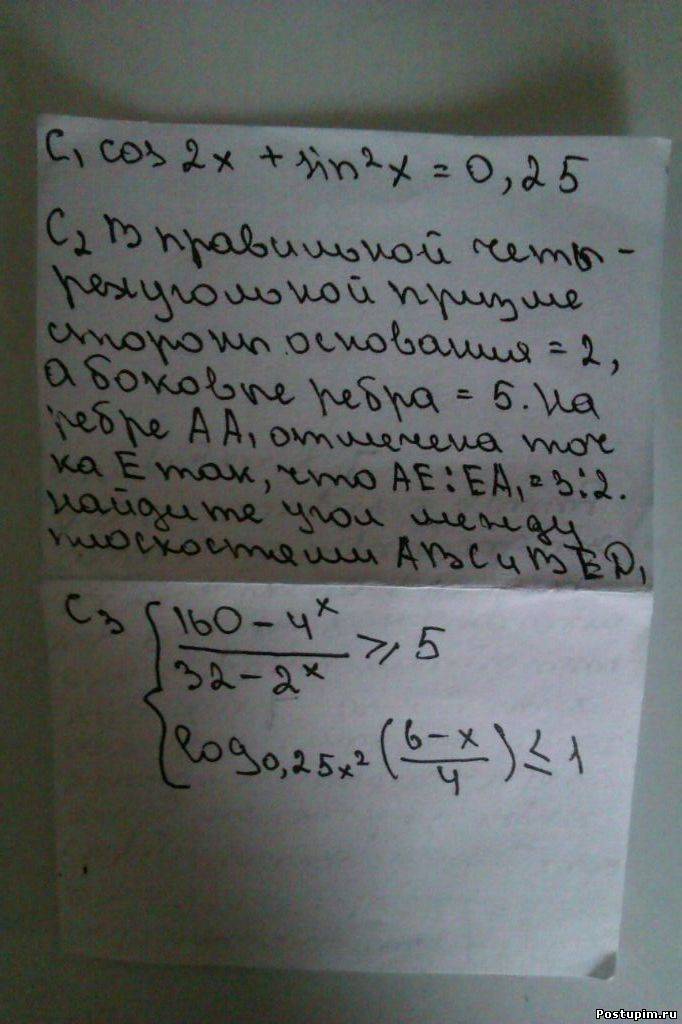 C₁ cos 2x + sin²x = 0,25
C₂ В правильной четы-
рехугольной призме
стороны основания = 2,
а боковые ребра = 5. На
ребре AA₁ отмечена точ
ка E так, что AE:EA₁ = 3:2.
Найдите угол между
плоскостями ABC и BED₁
C₃ { (160 - 4ˣ)/(32 - 2ˣ) ≥ 5
log₀,₂₅ₓ² ((6-x)/4) ≤ 1
Postupim.ru